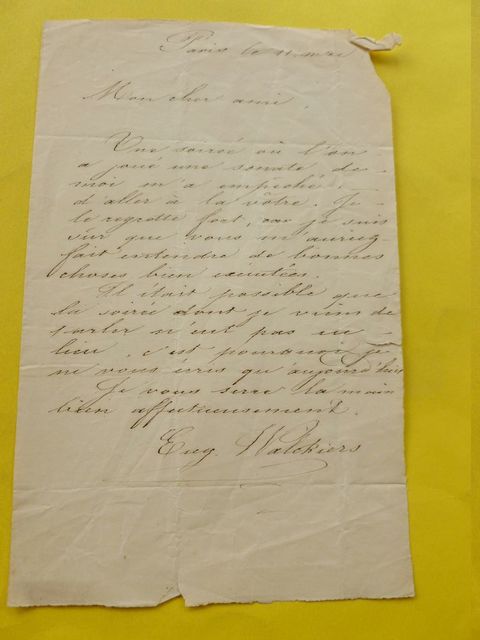 Paris le 11 mai
Mon cher ami,
Une soirée où l'on
a joué une sonate de
moi m'a empêché
d'aller à la vôtre. Je
le regrette fort, car je suis
sûr que vous m'auriez
fait entendre de bonnes
choses bien exécutées.
Il était possible que
la soirée dont je viens de
parler n'eut pas eu
lieu, c'est pourquoi je
ne vous écris qu'aujourd'hui
Je vous serre la main
bien affectueusement.
Eug. Walckiers